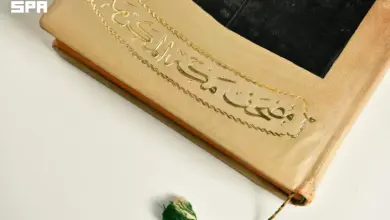 SPA
مصحف مكة المكرمة